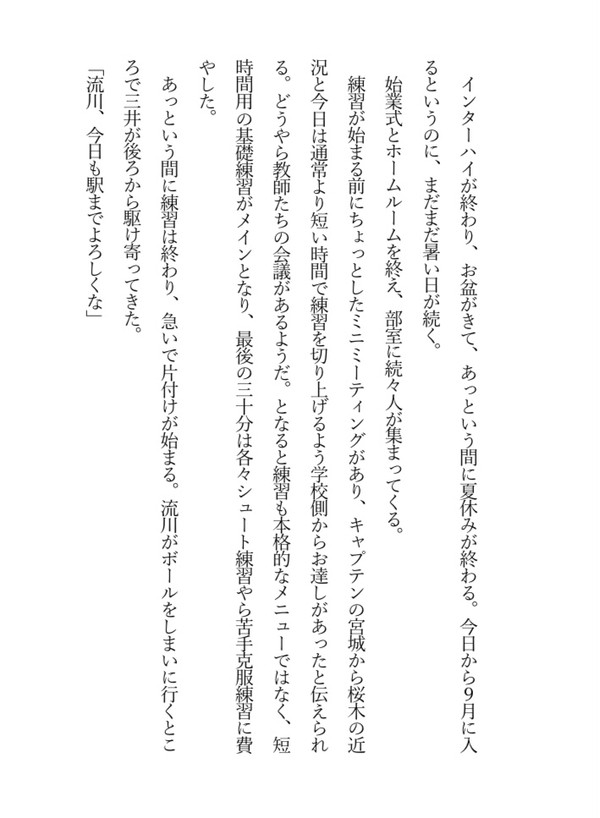 インターハイが終わり、お盆がきて、あっという間に夏休みが終わる。今日から９月に入
るというのに、まだまだ暑い日が続く。
　始業式とホームルームを終え、部室に続々人が集まってくる。
　練習が始まる前にちょっとしたミニミーティングがあり、キャプテンの宮城から桜木の近
況と今日は通常より短い時間で練習を切り上げるよう学校側からお達しがあったと伝えられ
る。どうやら教師たちの会議があるようだ。となると練習も本格的なメニューではなく、短
時間用の基礎練習がメインとなり、最後の三十分は各々シュート練習やら苦手克服練習に費
やした。
　あっという間に練習は終わり、急いで片付けが始まる。流川がボールをしまいに行くとこ
ろで三井が後ろから駆け寄ってきた。
「流川、今日も駅までよろしくな」